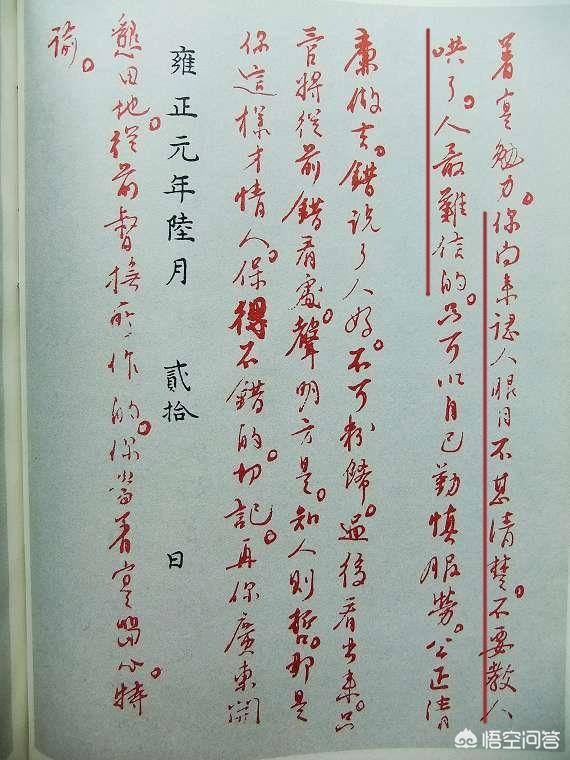 著寔勉力。你向來認人眼目不甚清楚。不要教人
哄了。人最難信的。只可以自己勤慎服勞。公正清
廉做去。錯說了人好。不可粉飾。過後看出來。只
管將從前錯看處。聲明方是。知人則哲。那是
你這樣才情人。保得不錯的。切記。再你廣東開
雍正元年陸月 貳拾 日
墾田地。從前督撫所作的。你當著寔留心。特
諭。
悟空问答